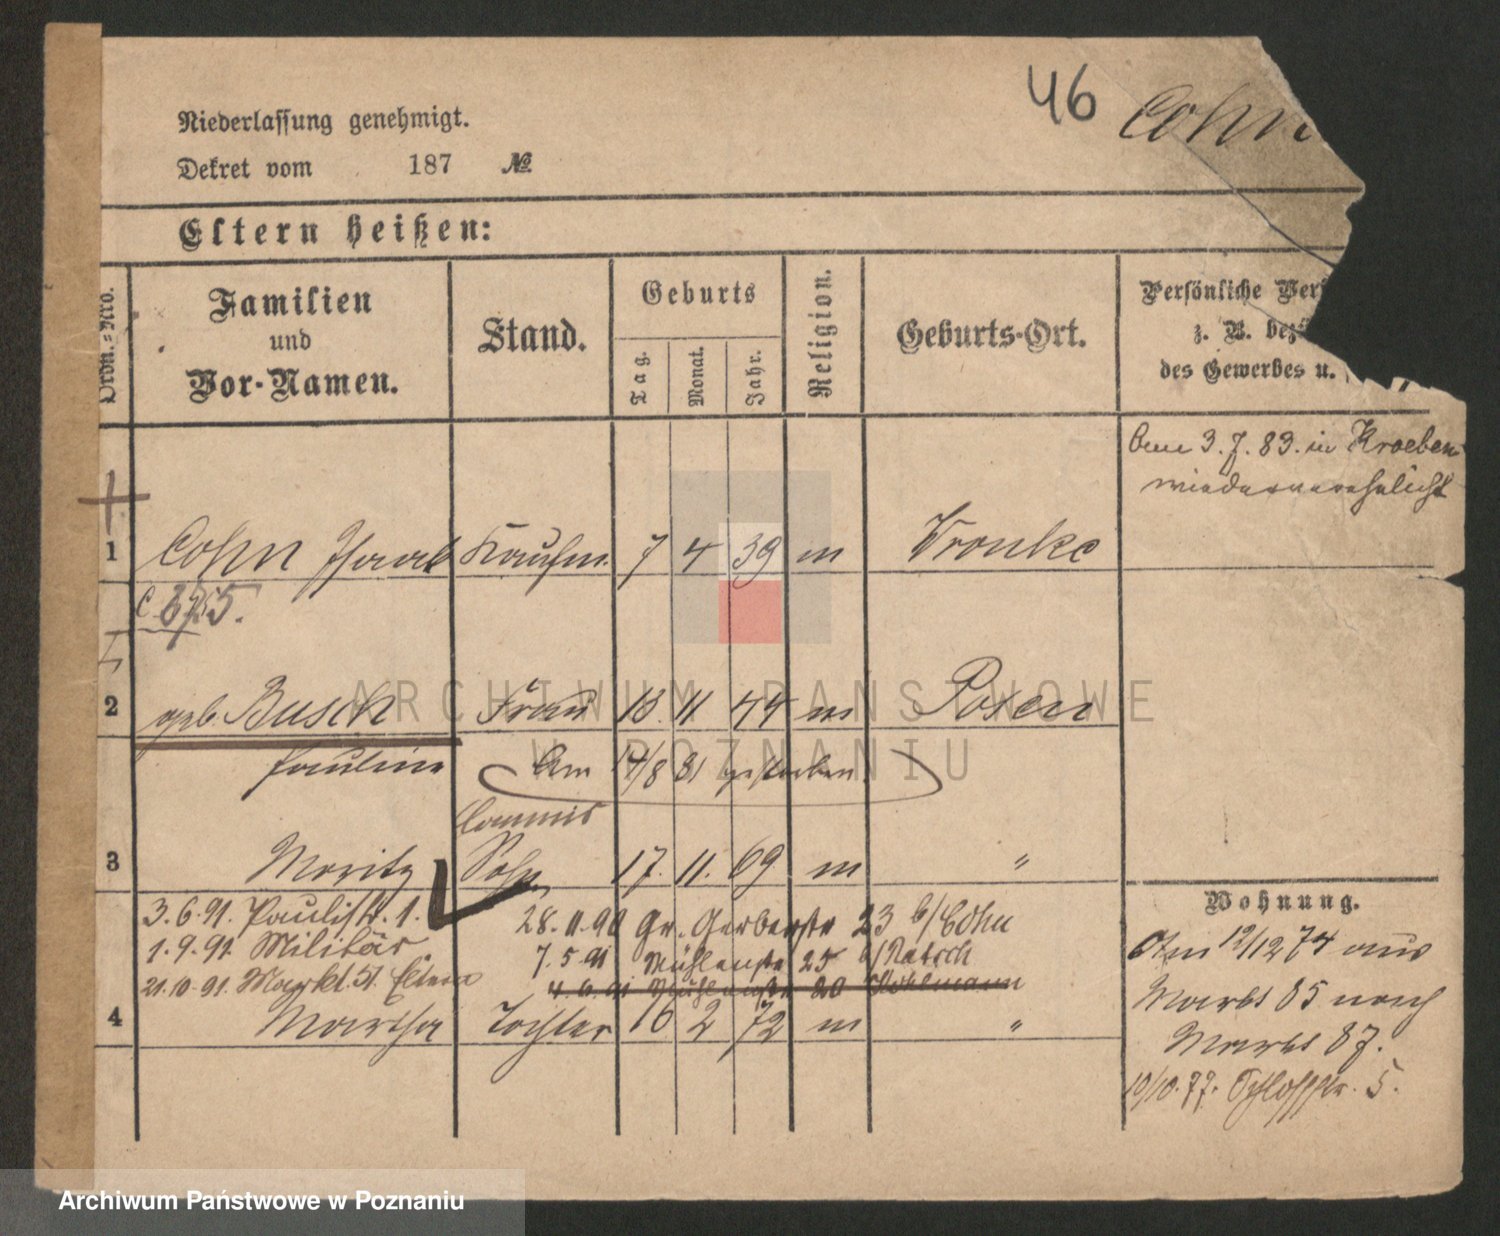 46 Cohn
Niederlassung genehmigt.
Dekret vom 187 №
Eltern heißen:
Ordn.-Nro.
Familien
und
Vor-Namen.
Stand.
Geburts
Tag.
Monat.
Jahr.
Religion.
Geburts-Ort.
Persönliche
z. B.
des Gewerbes u.
Am 3.7.83. in Kroeben
wiederverehelicht
1 Cohn Isaak Kaufm. 7 4 39 m Wronke
2 geb. Busch Frau 18. 11 44 m Posen
Pauline Am 14/8 81 gestorben
Commis
3 Moritz Sohn 17. 11. 69 m "
3.6.91. Paulistr. 1. 28.11.90 Gr. Gerberstr 23 b/Cohn
1.9.91. Militär 7.5.91 Mühlenstr 25 b/
21.10.91. Markt 51. Eltern 4.6.91 Mühlenstr 20
4 Martha Tochter 16 2 72 m "
Wohnung.
Am 12/12 74 aus
Markt 85 nach
Markt 87.
10/10.77. Schloßstr. 5.
ARCHIWUM PAŃSTWOWE
W POZNANIU
Archiwum Państwowe w Poznaniu